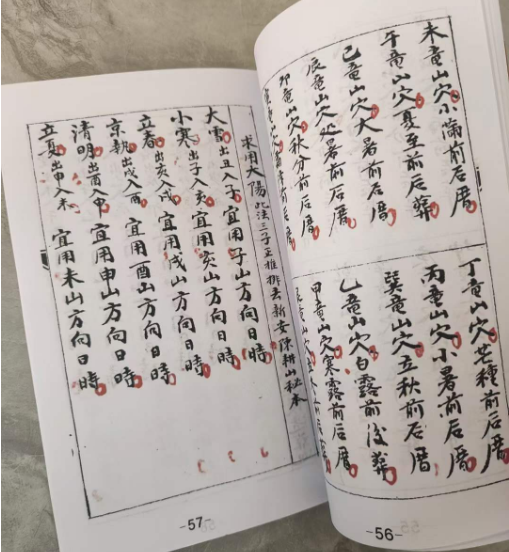 未竜山穴小滿前后厝
午竜山穴夏至前后葬
巳竜山穴大暑前后厝
辰竜山穴处暑前后厝
卯竜山穴秋分前后厝
丁竜山穴芒種前后厝
丙竜山穴小暑前后厝
巽竜山穴立秋前后厝
乙竜山穴白露前後葬
甲竜山穴寒露前后厝
-56-
求用太陽 此法三子正推排去新安陳耕山秘本
大雪出丑入子 宜用子山方向日時
小寒出子入亥 宜用亥山方向日時
立春出亥入戌 宜用戌山方向日時
京執出戌入酉 宜用酉山方向日時
清明出酉入申 宜用申山方向日時
立夏出申入未 宜用未山方向日時
-57-